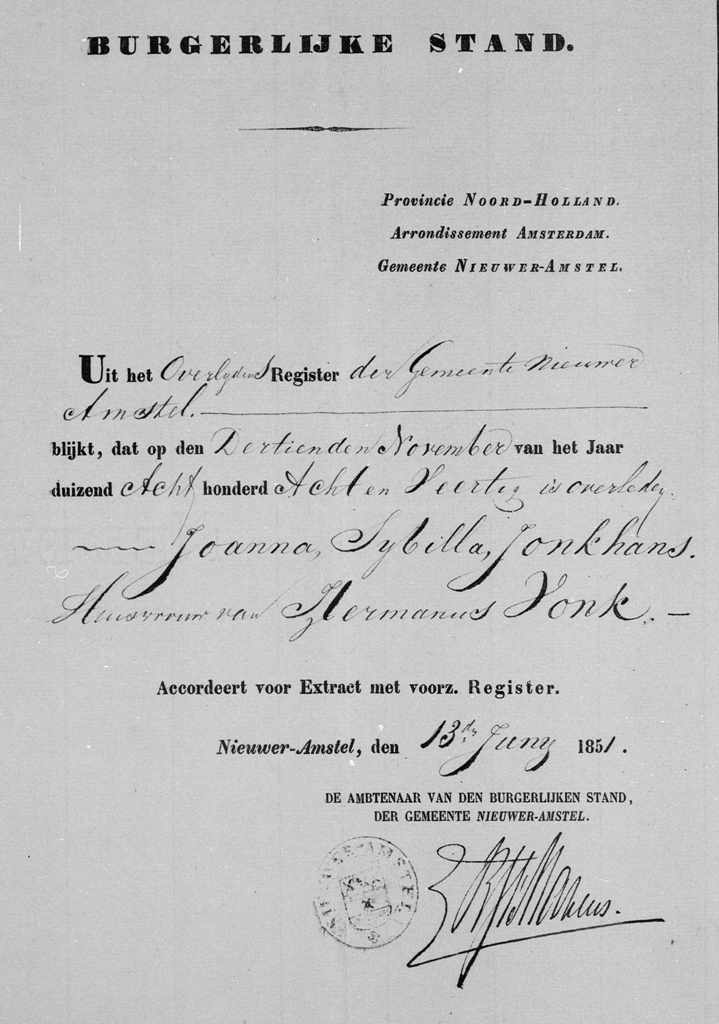 BURGERLIJKE STAND.
Provincie NOORD-HOLLAND.
Arrondissement AMSTERDAM.
Gemeente NIEUWER-AMSTEL.
Uit het Overlydens Register der Gemeente Nieuwer
Amstel.
blijkt, dat op den Dertienden November van het Jaar
duizend Acht honderd Acht en Veertig is overleden
Joanna, Sybilla, Jonkhans.
Huisvrouw van Hermanus Vonk. —
Accordeert voor Extract met voorz. Register.
Nieuwer-Amstel, den 13den Juny 1851.
DE AMBTENAAR VAN DEN BURGERLIJKEN STAND,
DER GEMEENTE NIEUWER-AMSTEL.
NIEUWER-AMSTEL